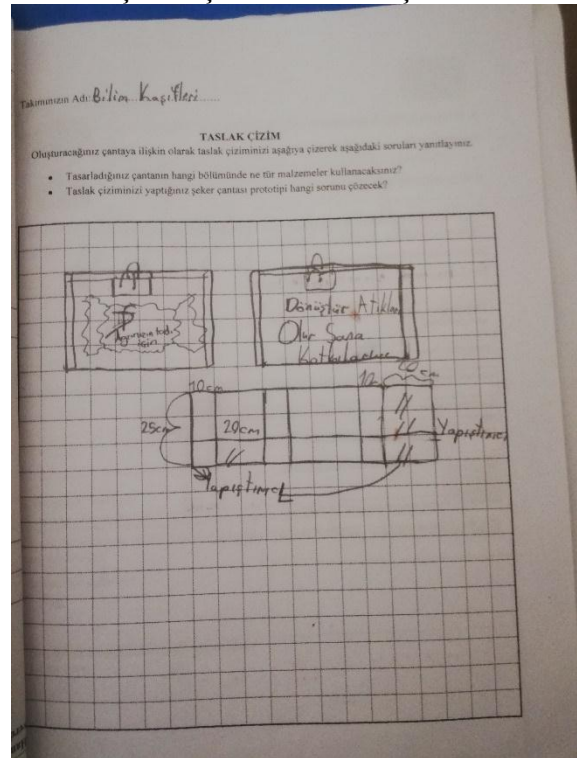 Takımınızın Adı: Bilim Kaşifleri
TASLAK ÇİZİM
Oluşturacağınız çantaya ilişkin olarak taslak çiziminizi aşağıya çizerek aşağıdaki soruları yanıtlayınız.
• Tasarladığınız çantanın hangi bölümünde ne tür malzemeler kullanacaksınız?
• Taslak çiziminizi yaptığınız şeker çantası prototipi hangi sorunu çözecek?
Ağzınızın tadı
için
Dönüştür Atıkları
Olur Sana
10cm
10
20cm
25cm
20cm
Yapıştırıcı
Yapıştırıcı